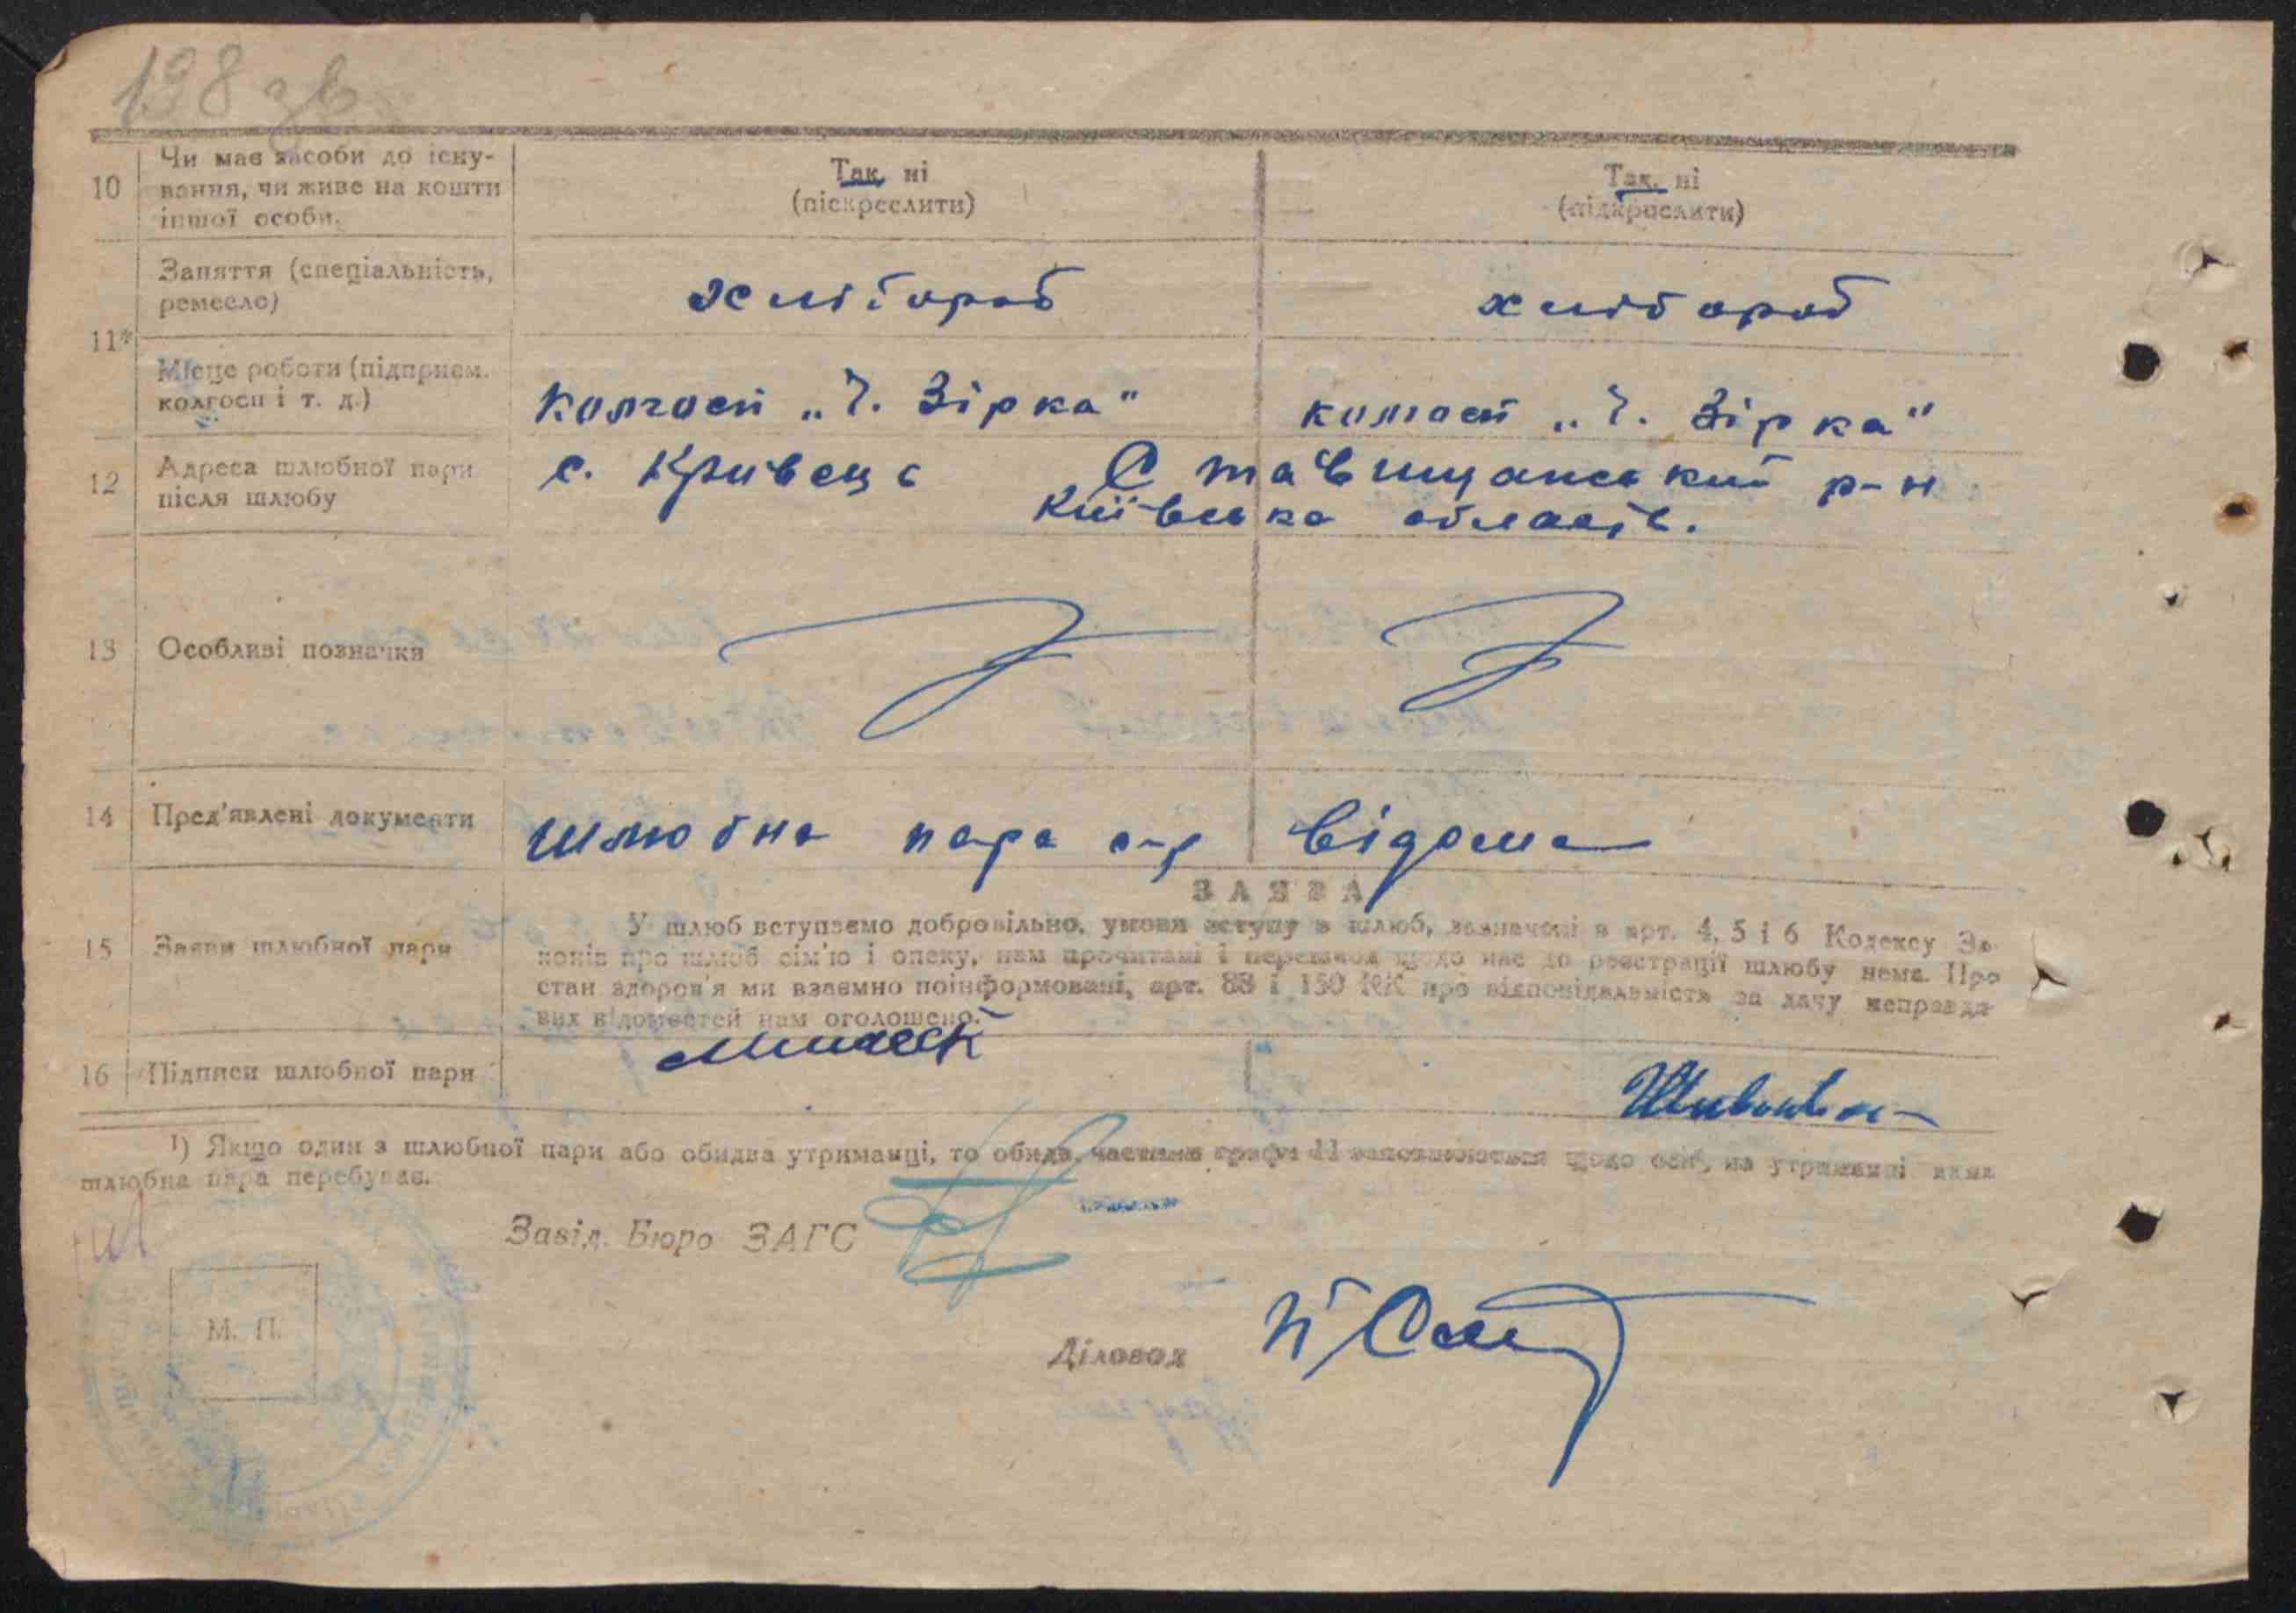 198 зв
10 Чи має засоби до існу-
вання, чи живе на кошти
іншої особи.
Так, ні
(піскреслити)
Так, ні
(підкреслити)
11*
Заняття (спеціальність,
ремесло)
хлібороб
хлібороб
Місце роботи (підприєм.
колгосп і т. д.)
колгосп „Ч. Зірка"
колгосп „Ч. Зірка"
12 Адреса шлюбної пари
після шлюбу
с. Кривець Ставищанський р-н
Київська область.
13 Особливі позначки
14 Пред'явлені документи
шлюбна пара відома
ЗАЯВА
15 Заяви шлюбної пари
У шлюб вступаємо добровільно, умови вступу в шлюб, зазначені в арт. 4, 5 і 6 Кодексу За-
конів про шлюб сім'ю і опеку, нам прочитані і перешкод щодо нас до реєстрації шлюбу нема. Про
стан здоров'я ми взаємно поінформовані, арт. 88 і 150 КК про відповідальність за дачу неправди-
вих відомостей нам оголошено.
16 Підписи шлюбної пари
¹) Якщо один з шлюбної пари або обидва утриманці, то обидві частини графи 11 заповнюються щодо осіб, на утриманні яких
шлюбна пара перебуває.
Завід. Бюро ЗАГС
М. П.
Діловод